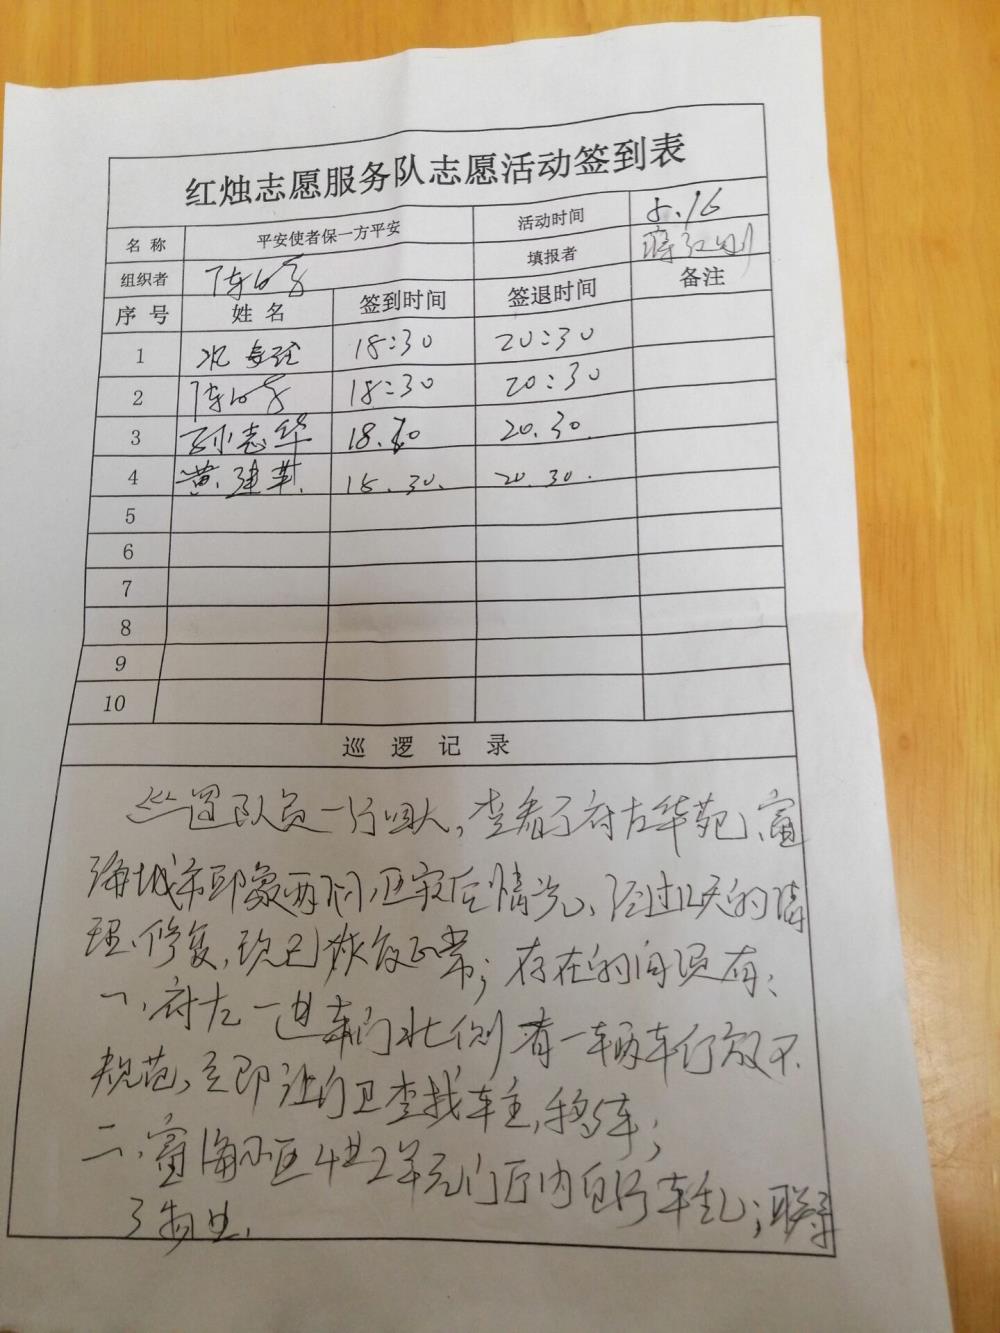 红烛志愿服务队志愿活动签到表
名 称 平安使者保一方平安 活动时间 5.16
组织者 填报者
序 号 姓 名 签到时间 签退时间 备注
1 18:30 20:30
2 18:30 20:30
3 孙志华 18.30 20.30.
4 黄建 18.30. 20.30.
5
6
7
8
9
10
巡 逻 记 录
巡逻队员一行四人，查看了府左华苑、富
海城市印象两个小区灾后情况，经过几天的清
理、修复，现已恢复正常；存在的问题有：
一、府左一进车门北侧有一辆车停放不
规范，立即让门卫查找车主，移车；
二、富海小区4#2单元门厅内自行车乱；联系
了物业.